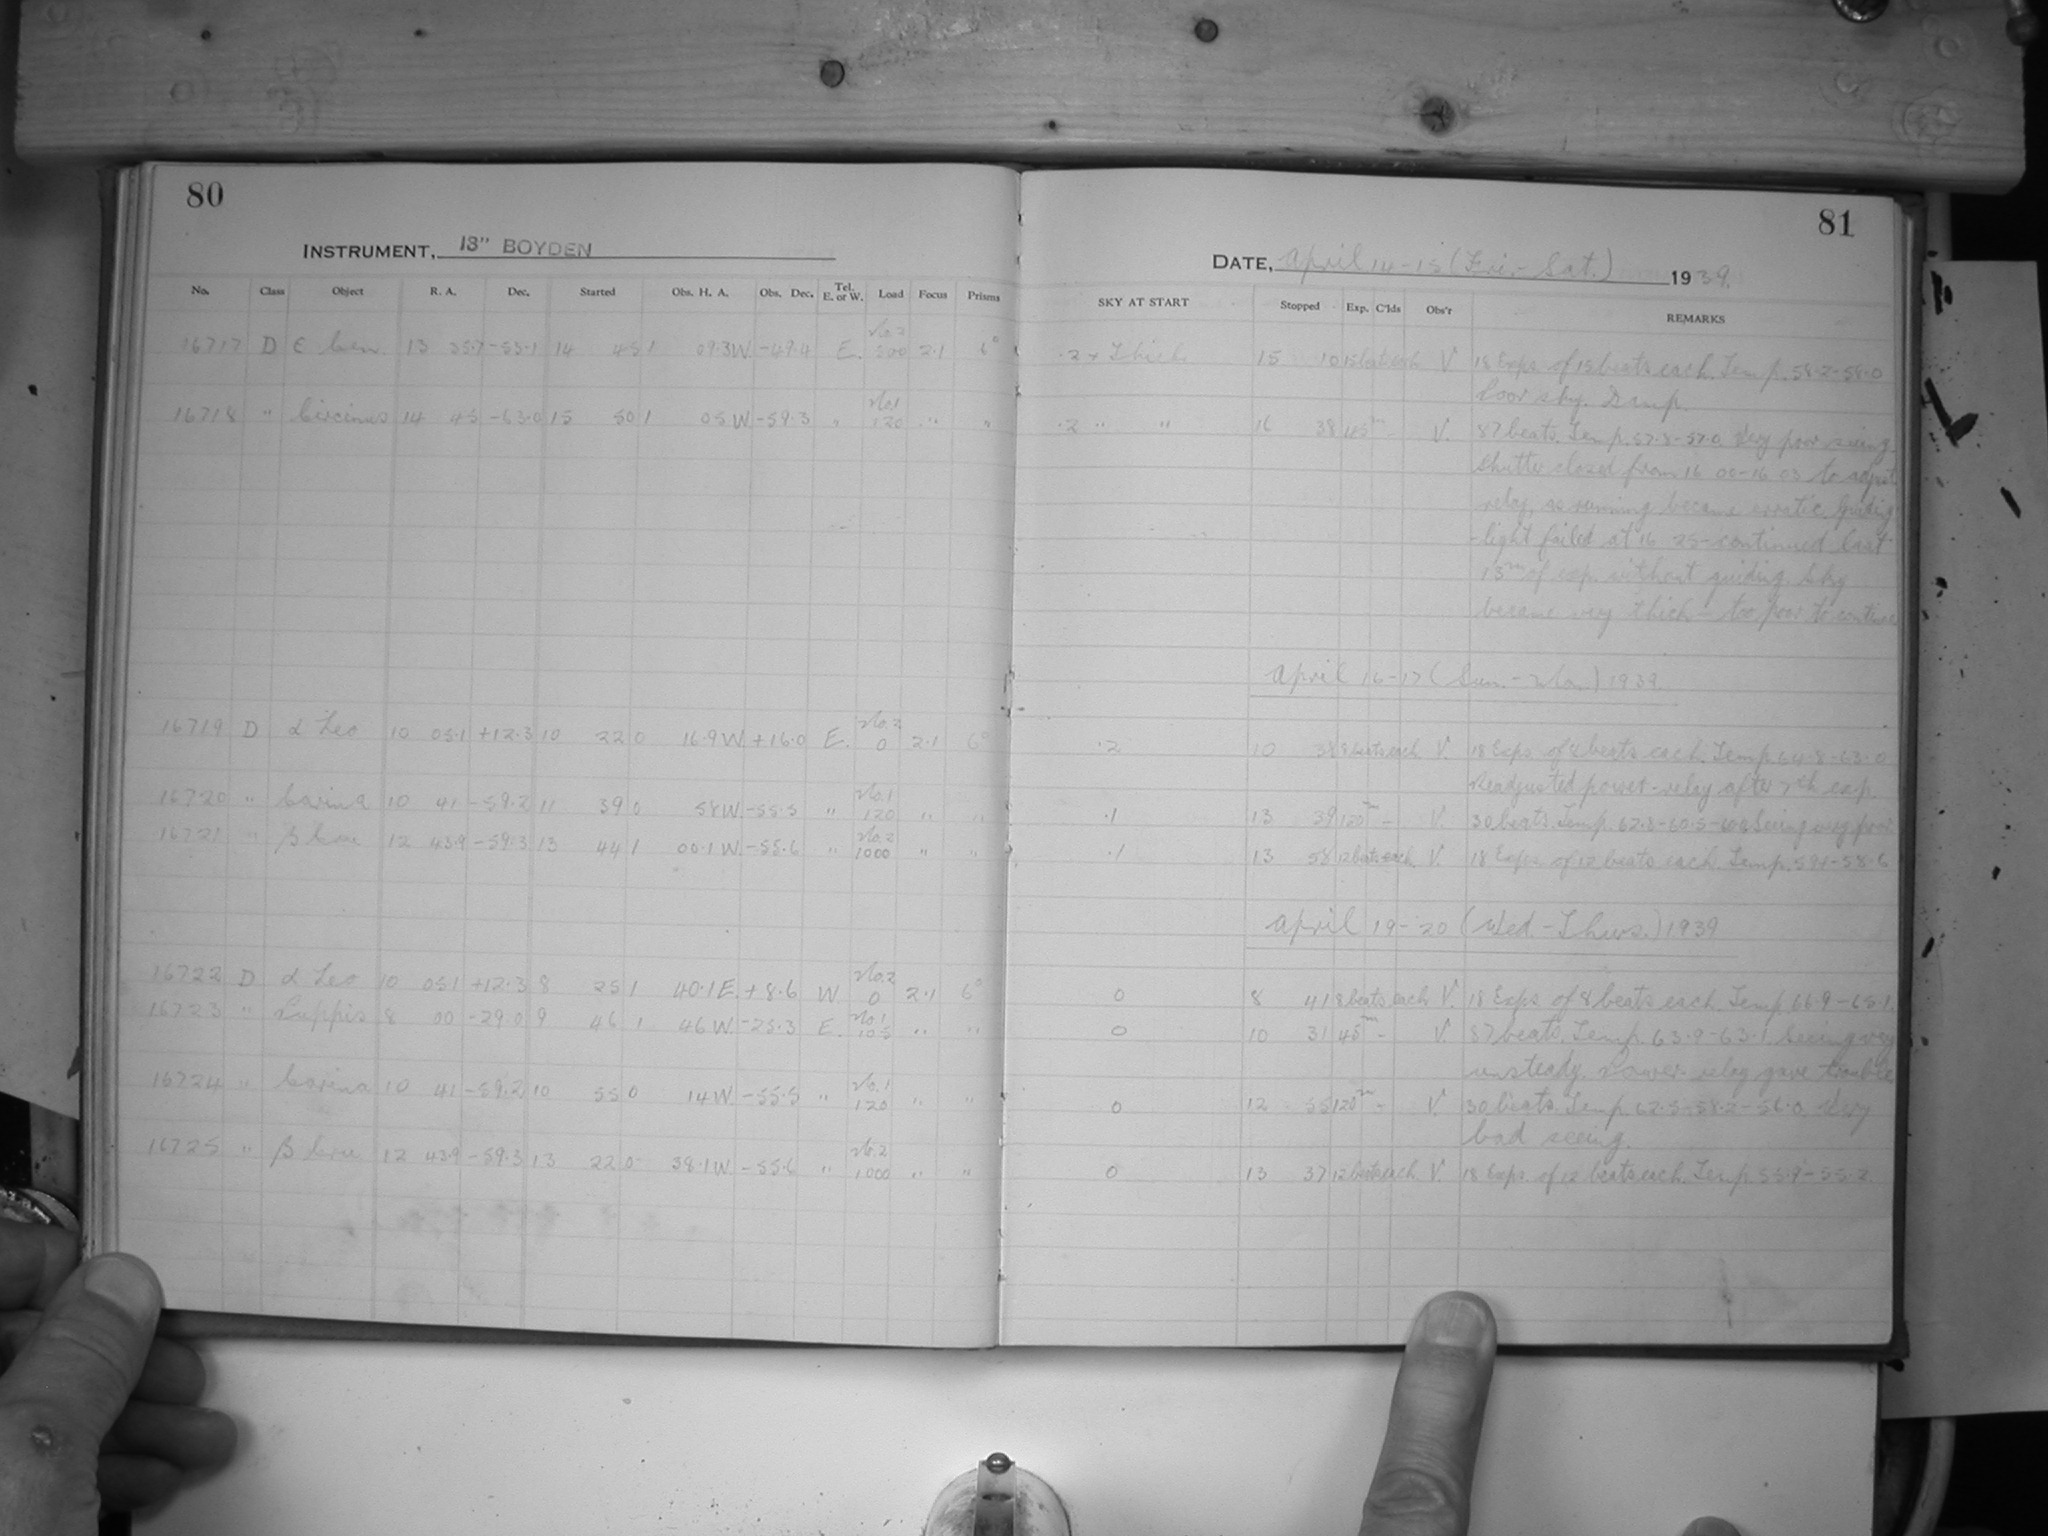 80
INSTRUMENT, 13" BOYDEN
No. Class Object R. A. Dec. Started Obs. H. A. Obs. Dec. Tel. E. or W. Load Focus Prisms
16717 D ε Cen. 13 35.7 -53.1 14 45 1 09.3W -49.4 E. No.2 500 2.1 6°
16718 " Circinus 14 45 -63.0 15 50 1 05W -59.3 " No.1 120 " "
16719 D α Leo 10 03.1 +12.3 10 22 0 16.9W +16.0 E. No.2 0 2.1 6°
16720 " Carina 10 41 -59.2 11 39 0 58W -55.5 " No.1 120 " "
16721 " β Cru 12 43.9 -59.3 13 44 1 00.1W -55.6 " No.2 1000 " "
16722 D α Leo 10 03.1 +12.3 8 25 1 40.1E. +8.6 W. No.2 0 2.1 6°
16723 " Puppis 8 00 -29.0 9 46 1 46W -25.3 E. No.1 105 " "
16724 " Carina 10 41 -59.2 10 55 0 14W -55.5 " No.1 120 " "
16725 " β Cru 12 43.9 -59.3 13 22 0 38.1W -55.6 " No.2 1000 " "
81
DATE, April 14-15 (Fri.-Sat.) 1939.
SKY AT START Stopped Exp. C'lds Obs'r REMARKS
.2 + Thick 15 10 15 beats each V. 18 Exps. of 15 beats each. Temp. 58.2-58.0
Poor sky. Damp.
.2 " " 16 38 45m - V. 87 beats. Temp. 57.8-57.0 Very poor seeing.
Shutter closed from 16 00-16 03 to adjust
relay, as running became erratic. Guiding
-light failed at 16 25-continued last
13m of exp. without guiding. Sky
became very thick - too poor to continue
April 16-17 (Sun.-Mon.) 1939
.2 10 38 8 beats each V. 18 Exps. of 8 beats each. Temp. 64.8-63.0
Readjusted power-relay after 7th exp.
.1 13 39 120m - V. 30 beats. Temp. 62.8-60.5-60.0 Seeing very poor
.1 13 58 12 beats each V. 18 Exps. of 12 beats each. Temp. 59.1-58.6
April 19-20 (Wed.-Thurs.) 1939
0 8 41 8 beats each V. 18 Exps. of 8 beats each. Temp. 66.9-65.1.
0 10 31 45m - V. 87 beats. Temp. 63.9-63.1. Seeing very
unsteady. Power-relay gave trouble
0 12 55 120m - V. 30 beats. Temp. 62.5-58.2-56.0. Very
bad seeing.
0 13 37 12 beats each V. 18 Exps. of 12 beats each. Temp. 55.9-55.2.